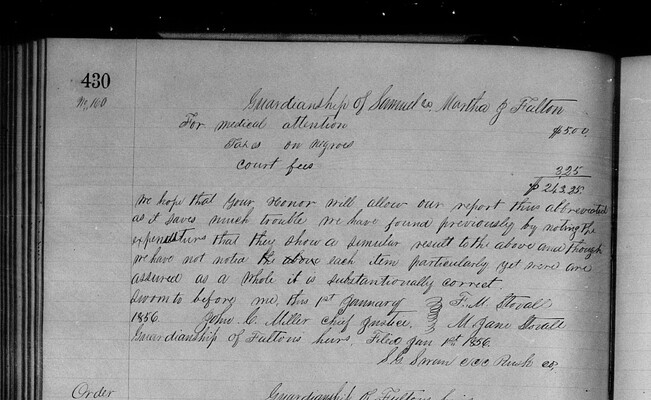 430
No. 160
Guardianship of Samuel & Martha J Fulton
For medical attention $5.00
Taxes on negroes
Court fees 3.25
$ 243.25
We hope that your Honor will allow our report thus abbreviated
as it saves much trouble we have found previously by noting the
expenditures that they show a similar result to the above and though
we have not noted the above each item particularly yet were are
assured as a whole it is substantionally correct.
Sworn to before me, this 1st January F. M. Stovall
1856. John C. Miller chief Justice. M. Jane Stovall
Guardianship of Fultons heirs, Filed Jan 1st 1856.
S G Swan c.c.c Rusk co.
Order
Guardianship of Fultons heirs